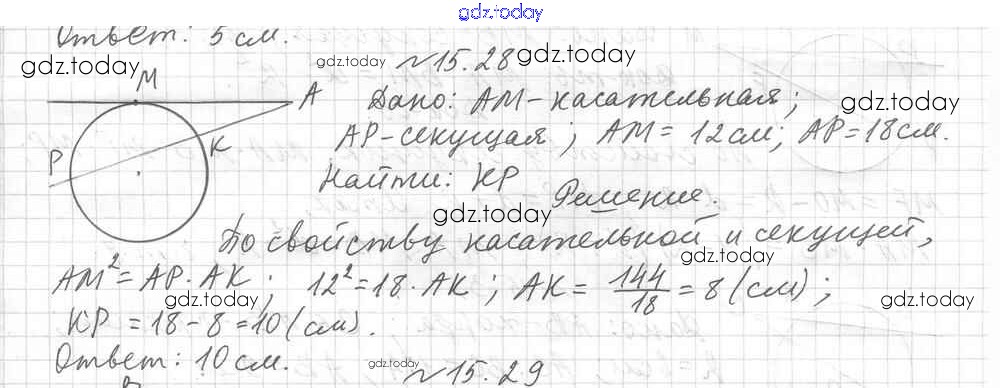 gdz.today
Ответ: 5 см.
gdz.today
№15.28
gdz.today
gdz.today
M
A
K
P
Дано: AM-касательная;
gdz.today
AP-секущая; AM = 12 см; AP = 18 см.
Найти: KP
Решение.
gdz.today
По свойству касательной и секущей,
gdz.today
AM² = AP · AK; 12² = 18 · AK; AK = 144/18 = 8 (см);
gdz.today
gdz.today
KP = 18 - 8 = 10 (см).
Ответ: 10 см.
gdz.today
№15.29
gdz.today